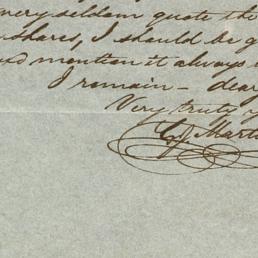 very seldom quote the
shares, I should be g
and mention it always
I remain - dear
Very truly y
Marti